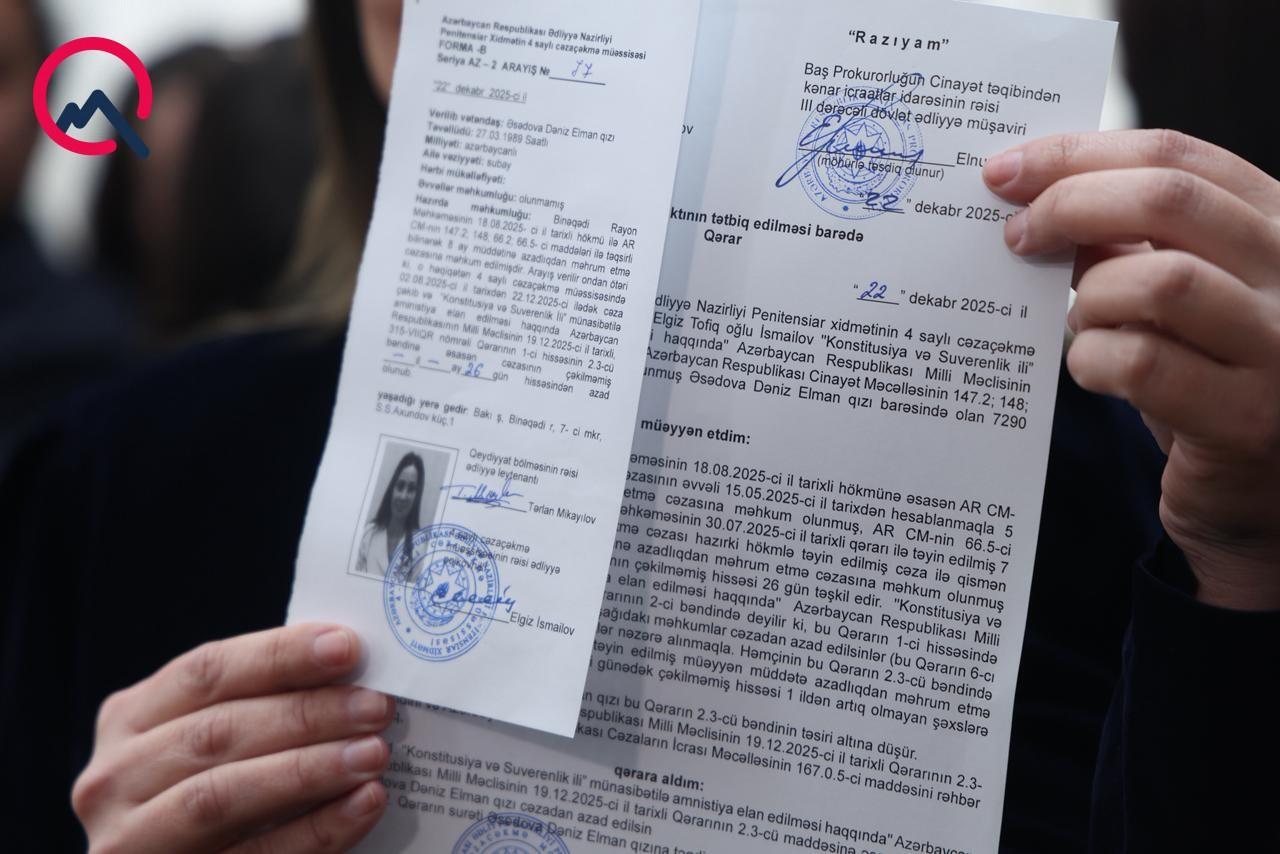 Azərbaycan Respublikası Ədliyyə Nazirliyi
Penitensiar Xidmətin 4 saylı cəzaçəkmə müəssisəsi
FORMA -B
Seriya AZ – 2 ARAYIŞ № 77
"22" dekabr 2025-ci il
Verilib vətəndaş: Əsədova Dəniz Elman qızı
Təvəllüdü: 27.03.1989 Saatlı
Milliyəti: azərbaycanlı
Ailə vəziyyəti: subay
Hərbi mükəlləfiyəti:
Əvvəllər məhkumluğu: olunmamış
Hazırda məhkumluğu: Binəqədi Rayon
Məhkəməsinin 18.08.2025- ci il tarixli hökmü ilə AR
CM-nin 147.2; 148; 66.2; 66.5- ci maddələri ilə təqsirli
bilinərək 8 ay müddətinə azadlıqdan məhrum etmə
cəzasına məhkum edilmişdir. Arayış verilir ondan ötəri
ki, o həqiqətən 4 saylı cəzaçəkmə müəssisəsində
02.08.2025-ci il tarixdən 22.12.2025-ci ilədək cəza
çəkib və "Konstitusiya və Suverenlik İli" münasibətilə
amnistiya elan edilməsi haqqında Azərbaycan
Respublikasının Milli Məclisinin 19.12.2025-ci il tarixli,
315-VIIQR nömrəli Qərarının 1-ci hissəsinin 2.3-cü
bəndinə əsasən cəzasının çəkilməmiş
– il – ay 26 gün hissəsindən azad
olunub.
yaşadığı yerə gedir: Bakı ş. Binəqədi r, 7- ci mkr,
S.S.Axundov küç,1
Qeydiyyat bölməsinin rəisi
ədliyyə leytenantı
Tərlan Mikayılov
4 saylı cəzaçəkmə
müəssisəsinin rəisi ədliyyə
Elgiz İsmailov
“Razıyam”
Baş Prokurorluğun Cinayət təqibindən
kənar icraatlar idarəsinin rəisi
III dərəcəli dövlət ədliyyə müşaviri
Elnu
(möhürlə təsdiq olunur)
“22” dekabr 2025-c
ov
ktının tətbiq edilməsi barədə
Qərar
“22” dekabr 2025-ci il
dliyyə Nazirliyi Penitensiar xidmətinin 4 saylı cəzaçəkmə
Elgiz Tofiq oğlu İsmailov "Konstitusiya və Suverenlik ili"
i haqqında" Azərbaycan Respublikası Milli Məclisinin
Azərbaycan Respublikası Cinayət Məcəlləsinin 147.2; 148;
unmuş Əsədova Dəniz Elman qızı barəsində olan 7290
müəyyən etdim:
əməsinin 18.08.2025-ci il tarixli hökmünə əsasən AR CM-
əzasının əvvəli 15.05.2025-ci il tarixdən hesablanmaqla 5
etmə cəzasına məhkum olunmuş, AR CM-nin 66.5-ci
əhkəməsinin 30.07.2025-ci il tarixli qərarı ilə təyin edilmiş 7
mə cəzası hazırki hökmlə təyin edilmiş cəza ilə qismən
nə azadlıqdan məhrum etmə cəzasına məhkum olunmuş
nın çəkilməmiş hissəsi 26 gün təşkil edir. "Konstitusiya və
a elan edilməsi haqqında" Azərbaycan Respublikası Milli
rarının 2-ci bəndində deyilir ki, bu Qərarın 1-ci hissəsində
şağıdakı məhkumlar cəzadan azad edilsinlər (bu Qərarın 6-cı
lər nəzərə alınmaqla. Həmçinin bu Qərarın 2.3-cü bəndində
təyin edilmiş müəyyən müddətə azadlıqdan məhrum etmə
i günədək çəkilməmiş hissəsi 1 ildən artıq olmayan şəxslərə
n qızı bu Qərarın 2.3-cü bəndinin təsiri altına düşür.
spublikası Milli Məclisinin 19.12.2025-ci il tarixli Qərarının 2.3-
kası Cəzaların İcrası Məcəlləsinin 167.0.5-ci maddəsini rəhbər
qərara aldım:
1. "Konstitusiya və Suverenlik ili" münasibətilə amnistiya elan edilməsi haqqında" Azərbaycan
publikası Milli Məclisinin 19.12.2025-ci il tarixli Qərarının 2.3-cü maddəsinə
dova Dəniz Elman qızı cəzadan azad edilsin
Qərarın surəti Əsədova Dəniz Elman qızına